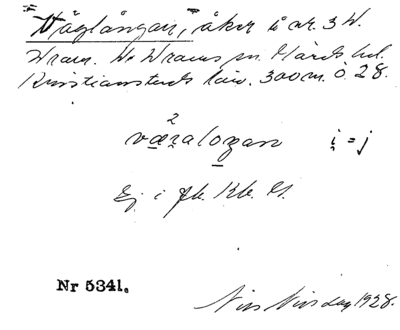 Väglångan, åker å nr. 3 W.
Wram. W. Wrams sn. Gärds hd.
Kristianstads län. 300 m. Ö. 28.
2
væɀaloɀan i̯ = j
Ej i jb. Kb. G.
Nr 5341.
Nils Nilsson 1928.